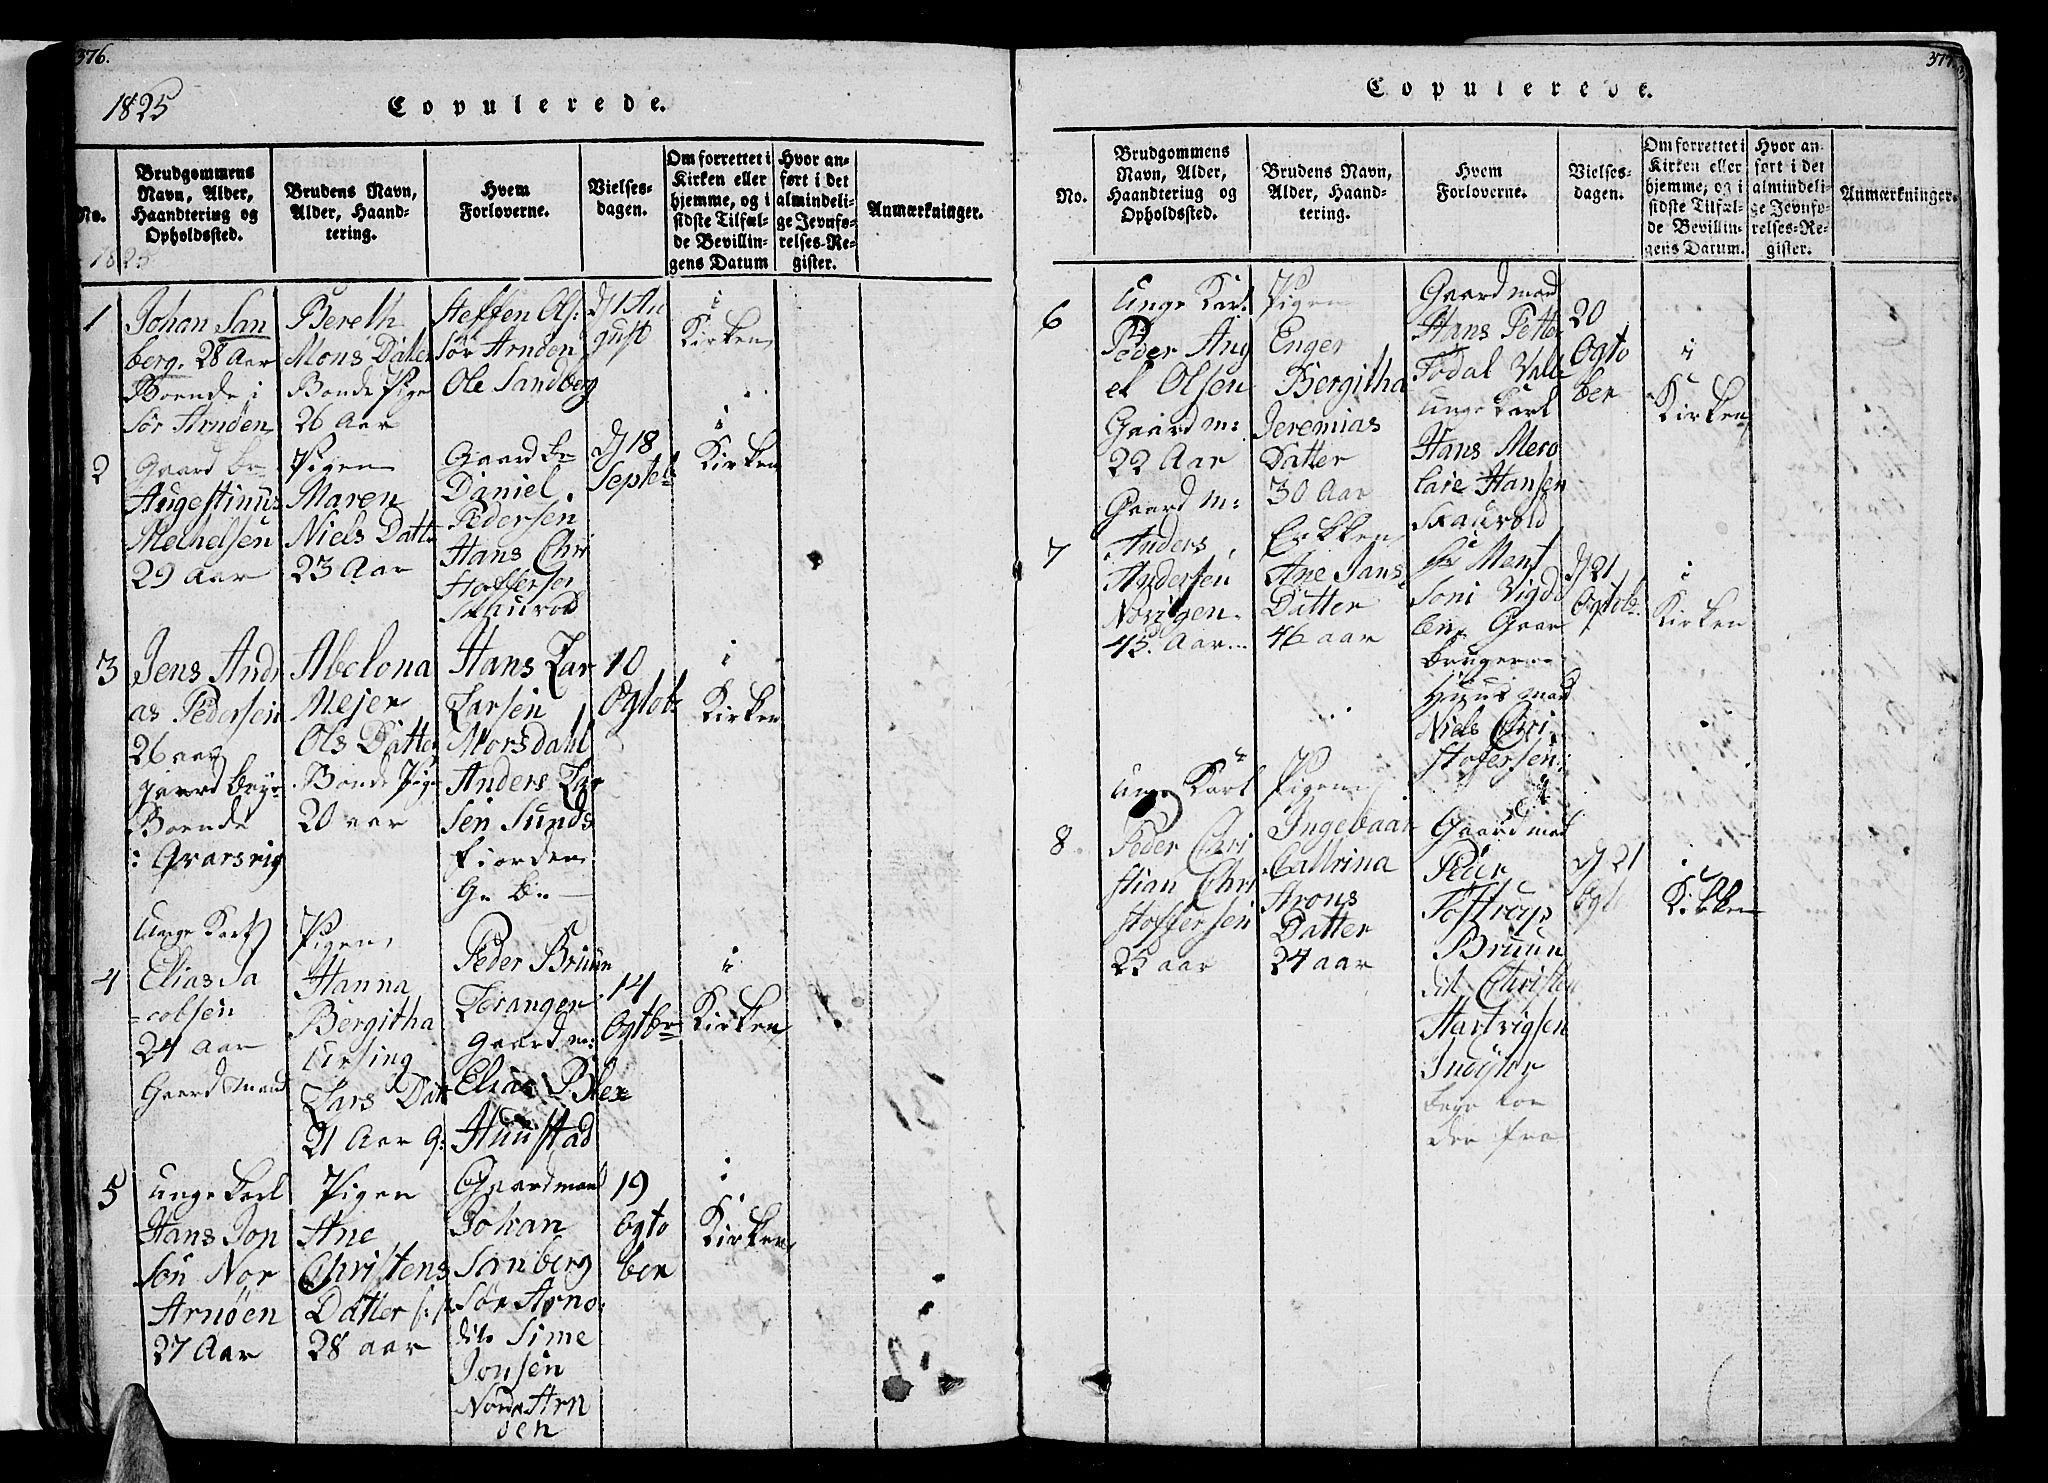 376.
1825
Copulerede.
No.
Brudgommens
Navn, Alder,
Haandtering og
Opholdssted.
Brudens Navn,
Alder, Haand-
tering.
Hvem
Forloverne.
Vielses-
dagen.
Om forrettet i
Kirken eller
hjemme, og i
sidste Tilfæl-
de Bevillin-
gens Datum
Hvor an-
ført i det
almindeli-
ge Jevnfø-
relses-Re-
gister.
Anmærkninger.
1825
1
Johan San
berg. 28 Aar
Boende i
Sør Arnøen
Bereth
Mons Datter
Bonde Pige
26 Aar
Steffen Ols:
Sør Arnøen
Ole Sandberg
D 1 Au
gust
i
Kirken
2
Gaard br
Augestinus
Mechelsen
29 Aar
Pigen
Maren
Niels Datt
23 Aar
Gaard br
Daniel
Pedersen
Hans Chri
stoffersen
D 18
Septe
i
Kirken
3
Jens Andr
as Pedersen
26 aar
gaard
Boende
i Qvarsvig
Abelona
Mejer
Ols Datter
Bonde Pige
20 aar
Hans Lar
Larsen
Morsdahl
Anders La
sen Sunds
fiorden
G. b.
10
Ogtob
i
Kirken
4
Unge Karl
Elias Ja
cobsen
24 Aar
Gaard mand
Pigen
Hanna
Bergitha
Ursing
Lars Dat
21 Aar g:
Peder Bruun
Lorangen
gaard m:
Elias
Huustad
14
Ogtbr
i
Kirken
5
unge karl
Hans Jon
sen Nor
Arnöen
27 Aar
Pigen
Ane
Christens
Datter
28 aar
Gaardmand
Johan
Sanberg
Sør Arnø
dit. Sime
Jonsen
Nord Arn
öen
19
Ogto
ber
i
Kirken
377
Copulerede.
No.
Brudgommens
Navn, Alder,
Haandtering og
Opholdssted.
Brudens Navn,
Alder, Haand-
tering.
Hvem
Forloverne.
Vielses-
dagen.
Om forrettet i
Kirken eller
hjemme, og i
sidste Tilfæl-
de Bevillin-
gens Datum.
Hvor an-
ført i det
almindeli-
ge Jevnfø-
relses-Re-
gister.
Anmærkninger.
6
Unge Karl
Peder Ang
el Olsen
Gaard m:
22 Aar
Gaard m:
Pigen
Enger
Bergitha
Jeremias
Datter
30 Aar
Gaard mand
Hans Petter
Todal
unge karl
Hans
Hansen
20
Ogto
ber
i
Kirken
7
Anders
Andersen
Norigen
45. Aar
Enken
Ane Jans
Datter
46 aar
Gaar
bruger
Huus mand
Niels Chri
stofersen
D 21
Ogtob
i
Kirken
8
unge Karl
Peder Chri
stian Chri
stoffersen
25 aar
Pigen
Ingebaar
Cathrina
Arons
Datter
24 aar
Gaard mand
Peier
Tostrup
Bruun
dit Christen
Hartvigsen
Indÿter
D 21
Ogto
i
Kirken